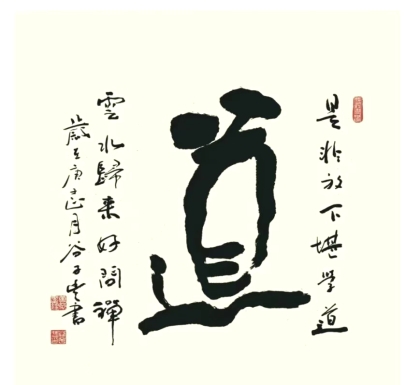 是非放下堪學道
道
雲水歸来好問禪
歲在庚子正月谷子書